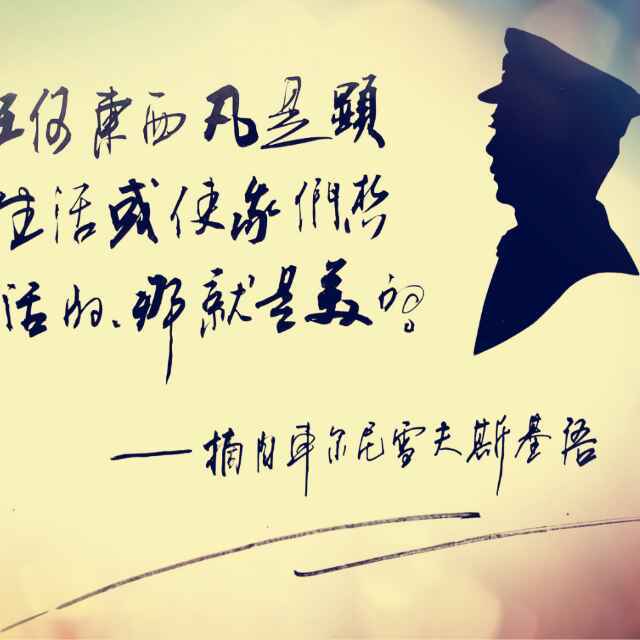 任何東西凡是顯
生活或使我們想
活的、那就是美的。
——摘自車尔尼雪夫斯基語